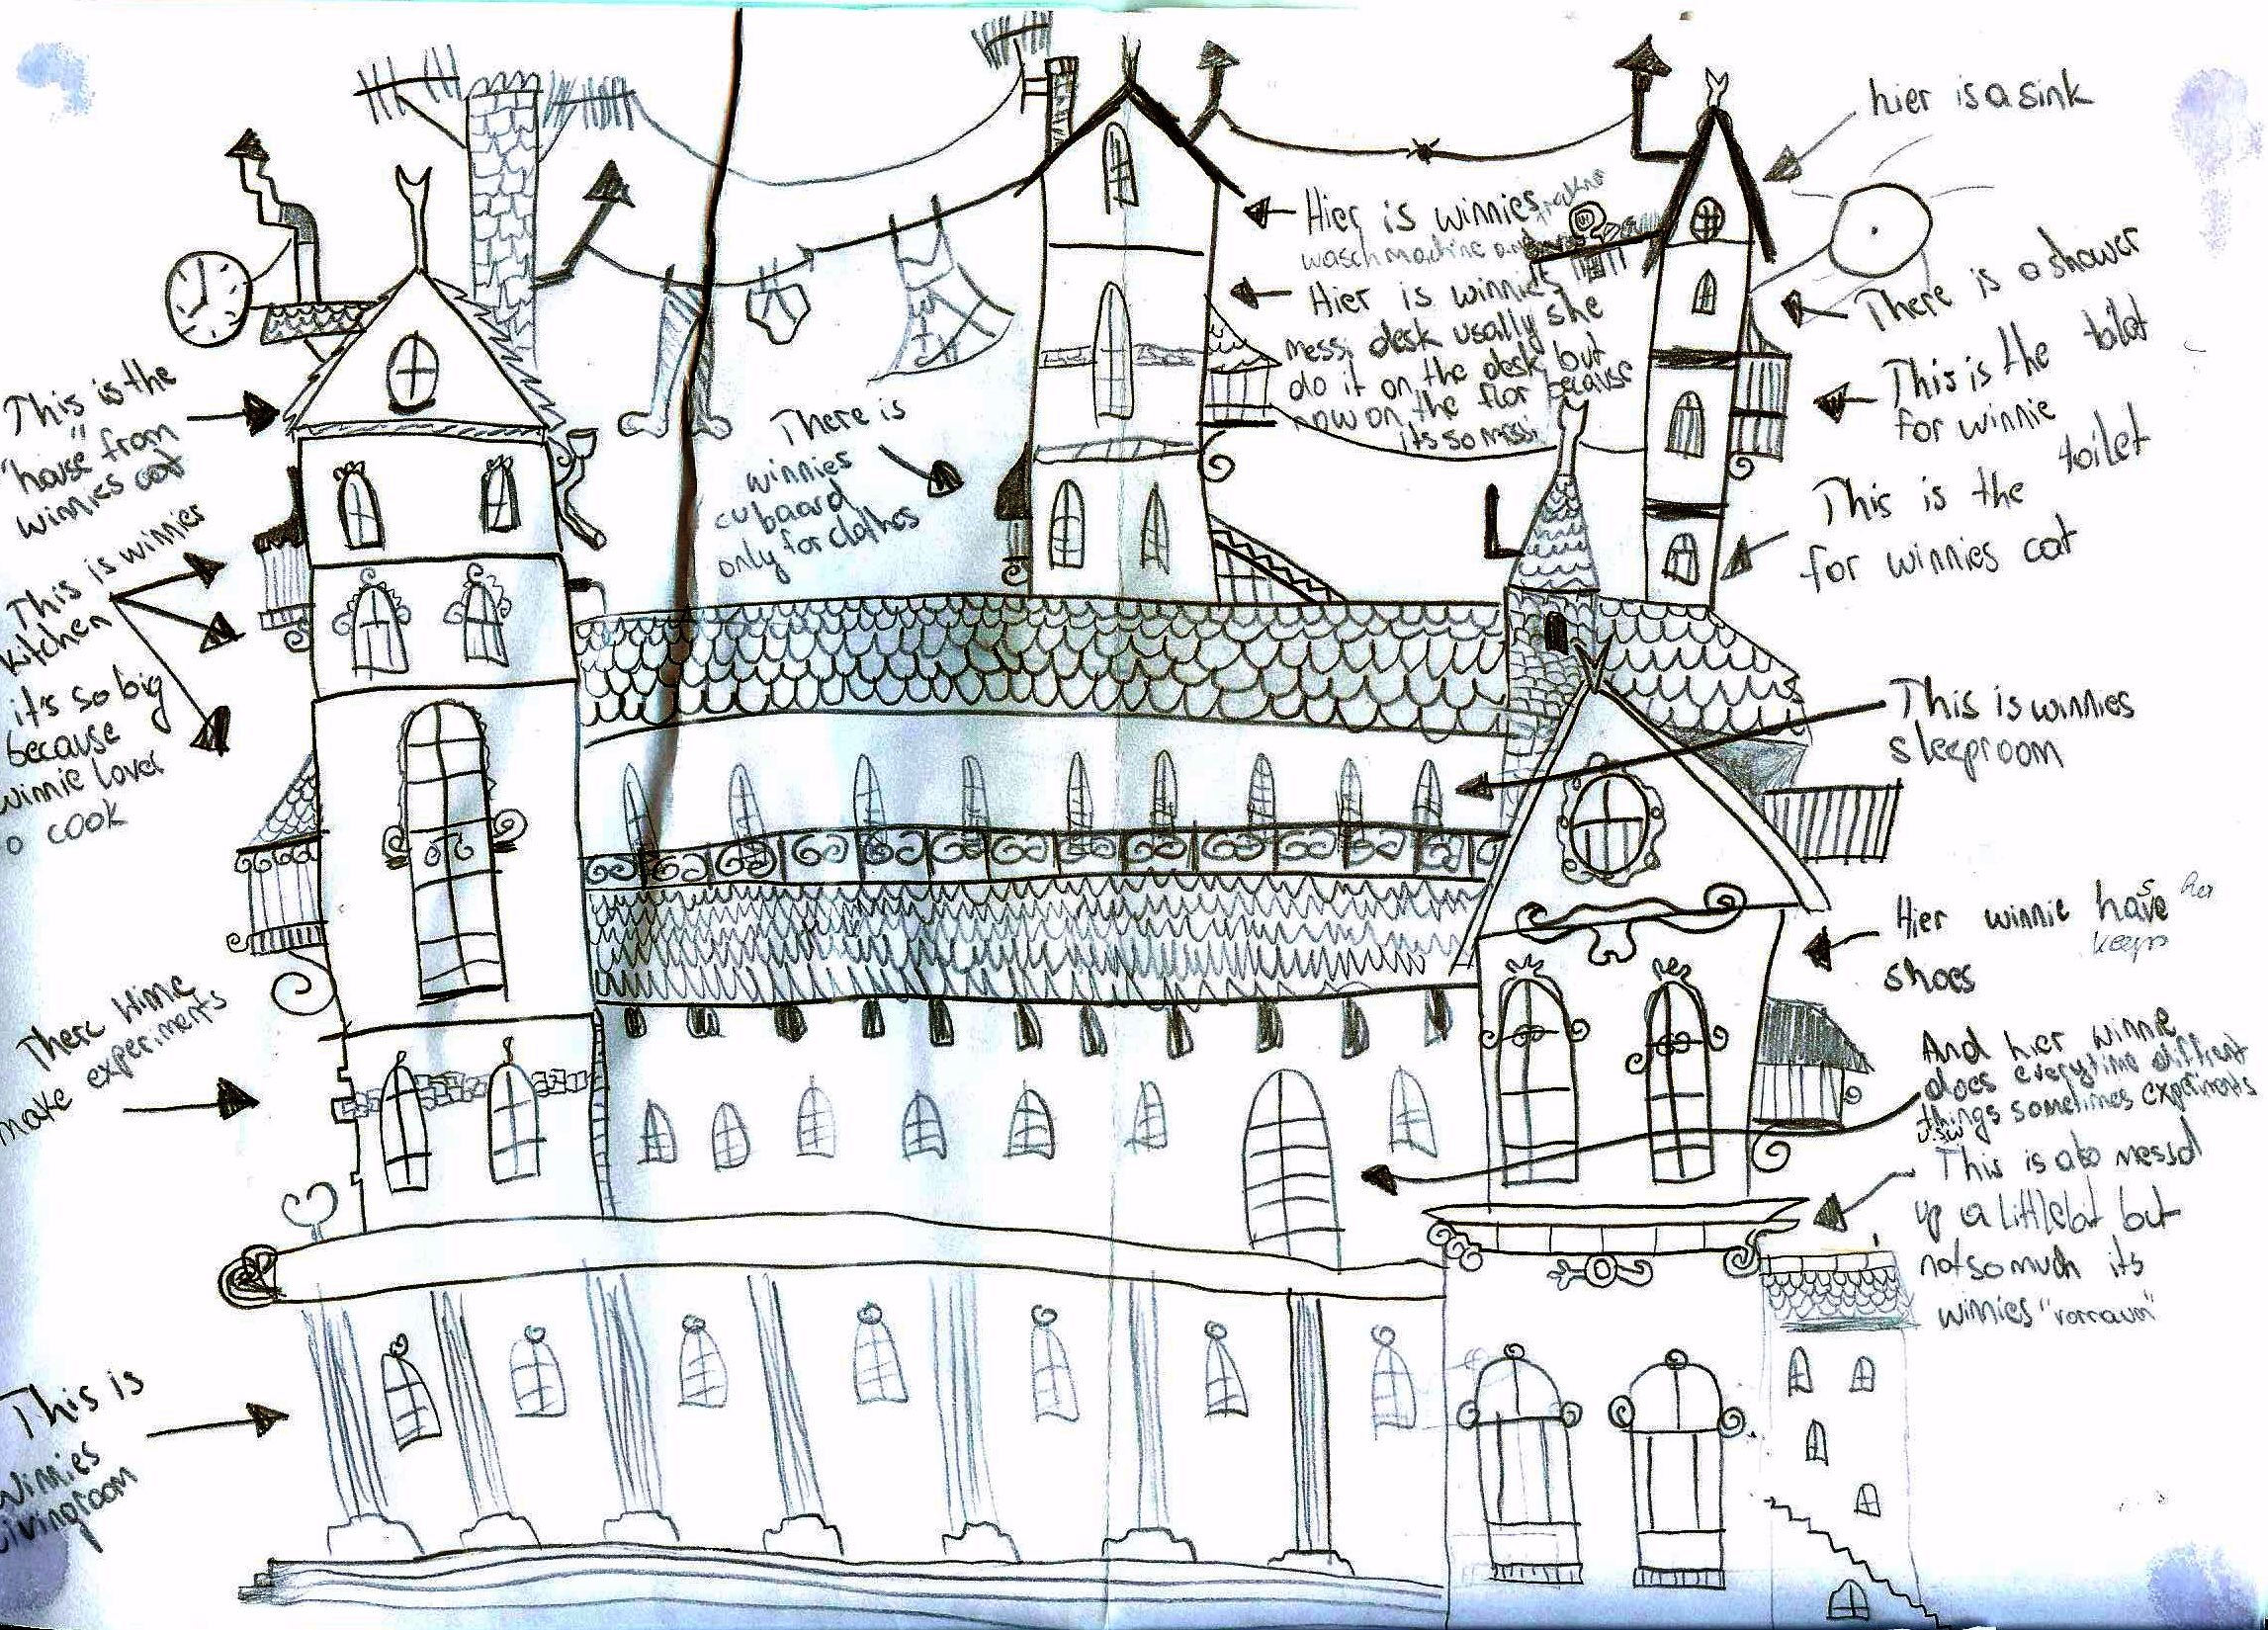 hier is a sink
There is a shower
This is the toilet
for winnie
This is the toilet
for winnies cat
This is winnies
sleeproom
Hier winnie have s her
keeps
shoes
And hier winnie
does everytime different
things sometimes experiments
u.s.w
This is also messd
up a little bit but
not so much its
winnies "vorraum"
Hier is winnies
waschmachine and
Hier is winnies
messi desk usally she
do it on the desk but
now on the flor because
its so messi
There is
winnies
cubaard
only for clothes
This is the
"house" from
winnies cat
This is winnies
kitchen
it's so big
because
winnie loves
o cook
There
make experiments
This is
winnies
livingroom